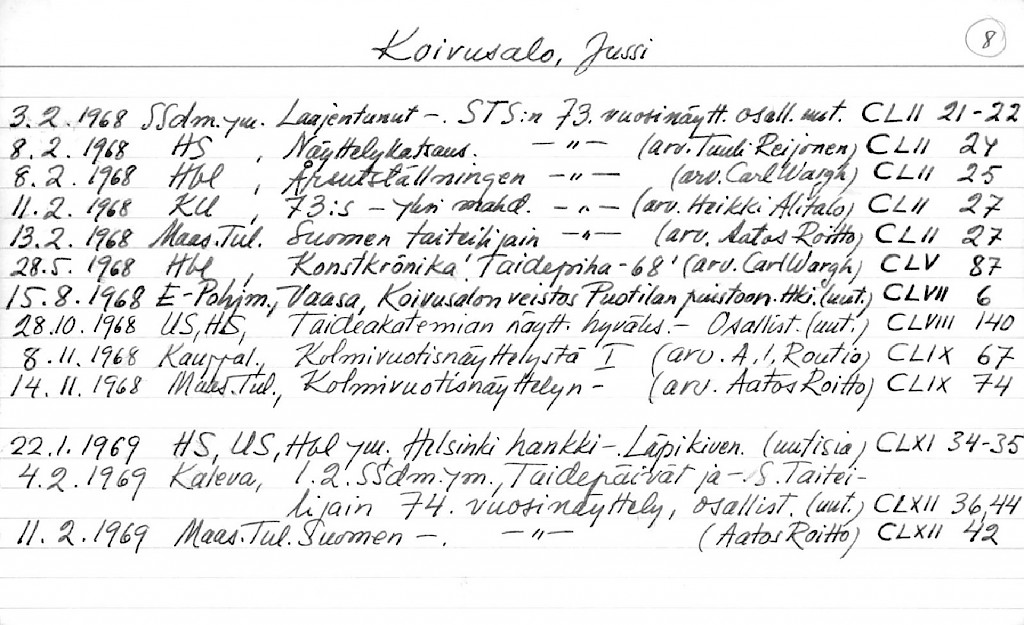 Koivusalo, Jussi
8
3.2.1968 SSdm.ym. Laajentunut -. STS:n 73. vuosinäytt. osall. uut. CLII 21-22
8.2.1968 HS, Näyttelykatsaus. -"- (arv. Tuuli Reijonen) CLII 24
8.2.1968 Hbl, Årsutställningen -"- (arv. Carl Wargh) CLII 25
11.2.1968 KU, 73:s - yksi mahd. -"- (arv. Heikki Alitalo) CLII 27
13.2.1968 Maas.Tul. Suomen taiteilijain -"- (arv. Aatos Roitto) CLII 27
28.5.1968 Hbl, Konstkrönika! Taidepiha-68' (arv. Carl Wargh) CLV 87
15.8.1968 E-Pohjm., Vaasa, Koivusalon veistos Puotilan puistoon. Hki. (uut.) CLVII 6
28.10.1968 US, HS, Taideakatemian näytt. hyväks. - Osallist. (uut.) CLVIII 140
8.11.1968 Kauppal., Kolmivuotisnäyttelystä I (arv. A.I. Routio) CLIX 67
14.11.1968 Maas.Tul., Kolmivuotisnäyttelyn - (arv. Aatos Roitto) CLIX 74
22.1.1969 HS, US, Hbl ym. Helsinki hankki - Läpikiven. (uutisia) CLXI 34-35
4.2.1969 Kaleva, 1.2. SSdm.ym., Taidepäivät ja - S. Taitei-
lijain 74. vuosinäyttely, osallist. (uut.) CLXII 36,44
11.2.1969 Maas.Tul. Suomen -. -"- (Aatos Roitto) CLXII 42